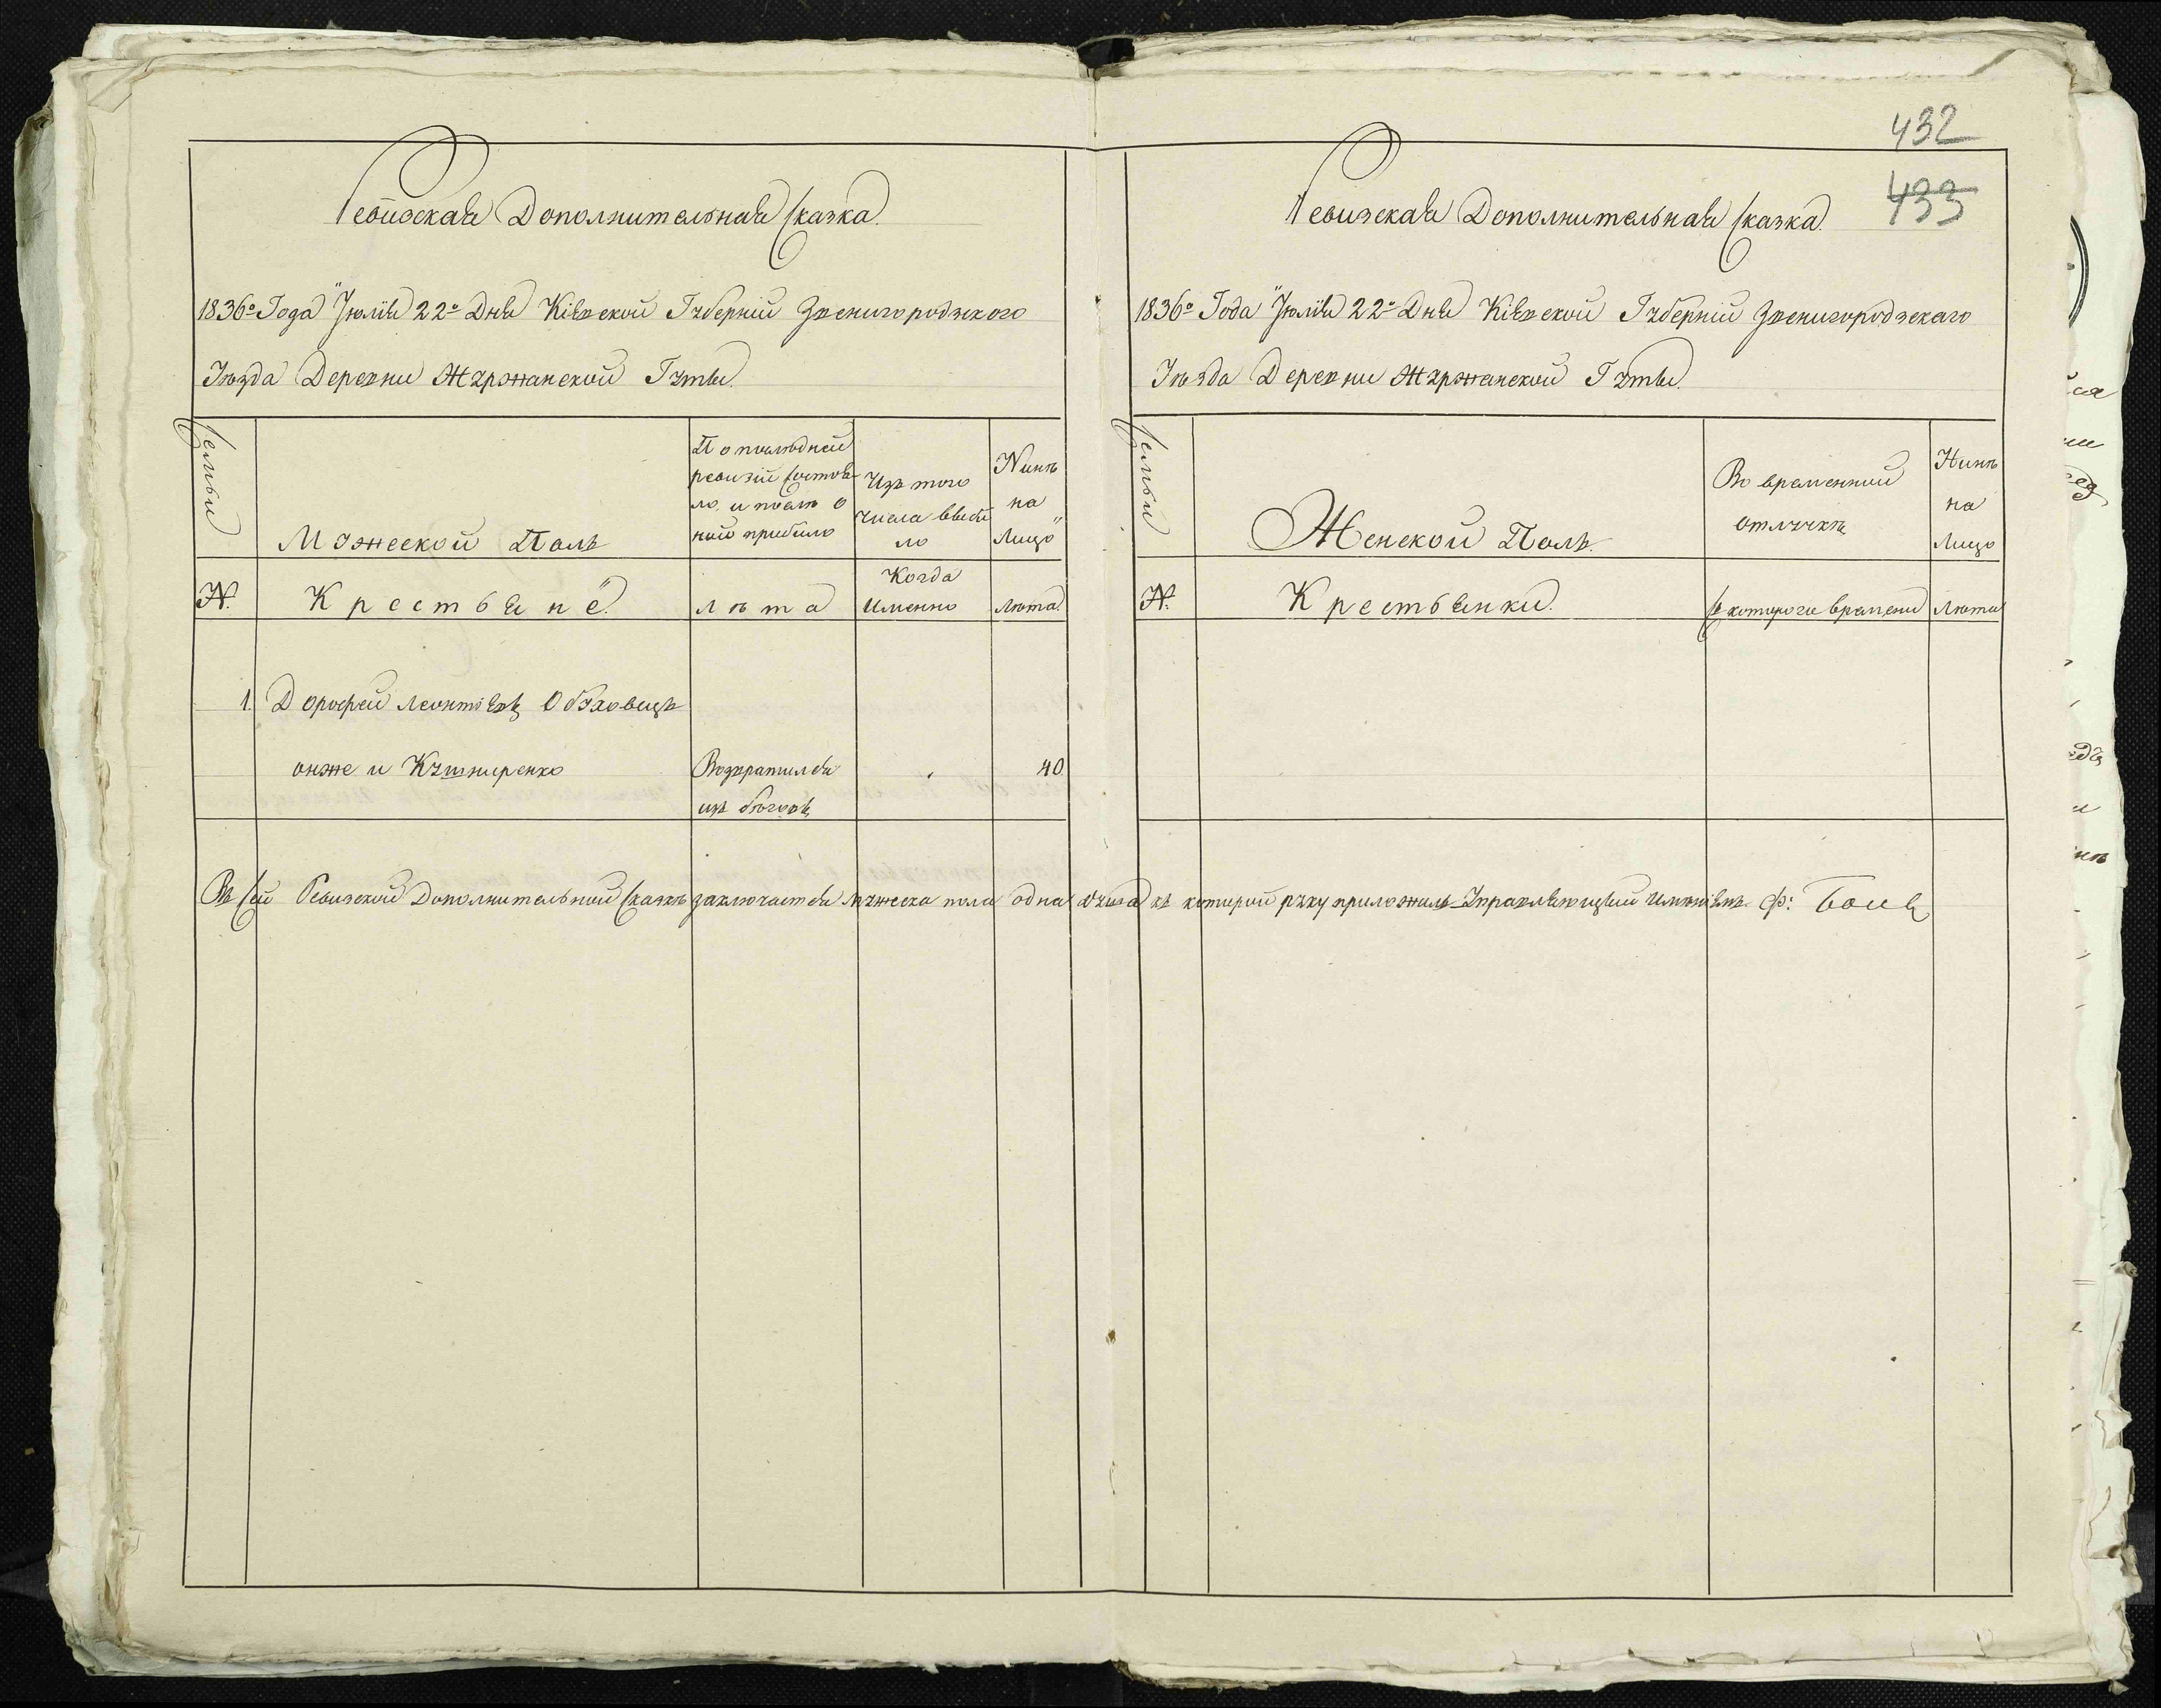 432
433
Ревизская Дополнителъная Сказка.
1836го Года Июля 22го Дня Кіевской Губерніи Звенигородзкого
Уезда Деревни Журжанской Гути
Семъи
Мужеской Полъ
По последней
ревизіи состоя-
ло, и после о
ной прибило
Изъ того
числа выби
ло
Нине
на
Лицо
№.
Крестьяне.
лета
Когда
имянно
лета
1. Дорофей Леонтіевъ Обуховецъ
онже и Кушниренко
Возвратился
изъ беговъ
40.
Ревизская Дополнителъная Сказка.
1836го Года Июля 22го Дня Кіевской Губерніи Звенигородзкаго
Уезда Деревни Журжанской Гути
Семъи
Женской Полъ.
Во временной
отлучке
Нине
на
Лицо
№.
Крестьянки.
С которого времени
Лета
Въ сей Ревизской Дополнителъной сказке заключается мужеска пола одна душа къ которой руку приложилъ Управляющій именіемъ Ф: